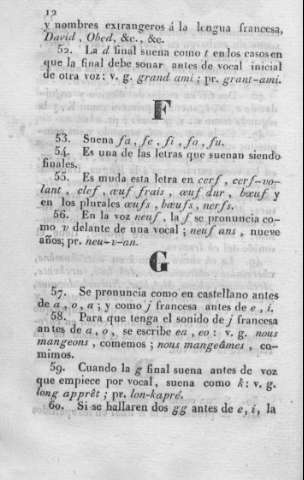 12
y nombres extrangeros á la lengua francesa,
David, Obed, &c., &c.
52. La d final suena como t en los casos en
que la final debe sonar antes de vocal inicial
de otra voz: v. g. grand ami; pr. grant-ami.
F
53. Suena fa, fe, fi, fo, fu.
54. Es una de las letras que suenan siendo
finales.
55. Es muda esta letra en cerf, cerf-vo-
lant, clef, œuf frais, œuf dur, bœuf y
en los plurales œufs, bœufs, nerfs.
56. En la voz neuf, la f se pronuncia co-
mo v delante de una vocal; neuf ans, nueve
años; pr. neu-v-an.
G
57. Se pronuncia como en castellano antes
de a, o, u; y como j francesa antes de e, i.
58. Para que tenga el sonido de j francesa
antes de a, o, se escribe ea, eo: v. g. nous
mangeons, comemos; nous mangeâmes, co-
mimos.
59. Cuando la g final suena antes de voz
que empiece por vocal, suena como k: v. g.
long apprêt; pr. lon-kapré.
60. Si se hallaren dos gg antes de e, i, la